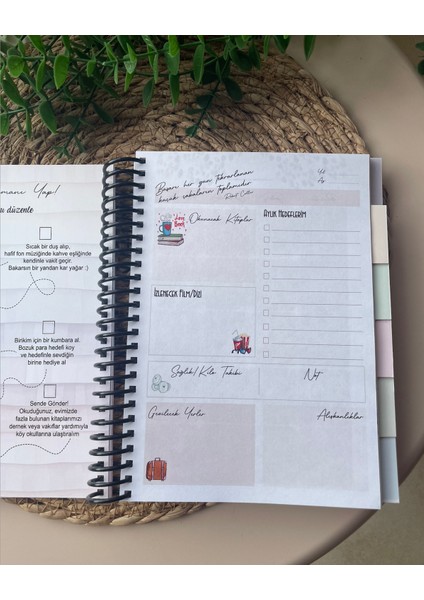 Yap!
düzenle
Sıcak bir duş alıp,
hafif fon müziğinde kahve eşliğinde
kendinle vakit geçir.
Bakarsın bir yandan kar yağar :)
Birikim için bir kumbara al.
Bozuk para hedefi koy
ve hedefinle sevdiğin
birine hediye al
Sende Gönder!
Okuduğunuz, evimizde
fazla bulunan kitaplarımızı
dernek veya vakıflar yardımıyla
köy okullarına ulaştıralım
Başarı her gün tekrarlanan
küçük çabaların toplamıdır.
Robert Collier
Yıl:
Ay:
Okunacak Kitaplar
Aylık Hedeflerim
İzlenecek Film/Dizi
Sağlık/Kilo Takibi
Not
Gezilecek Yerler
Alışkanlıklar